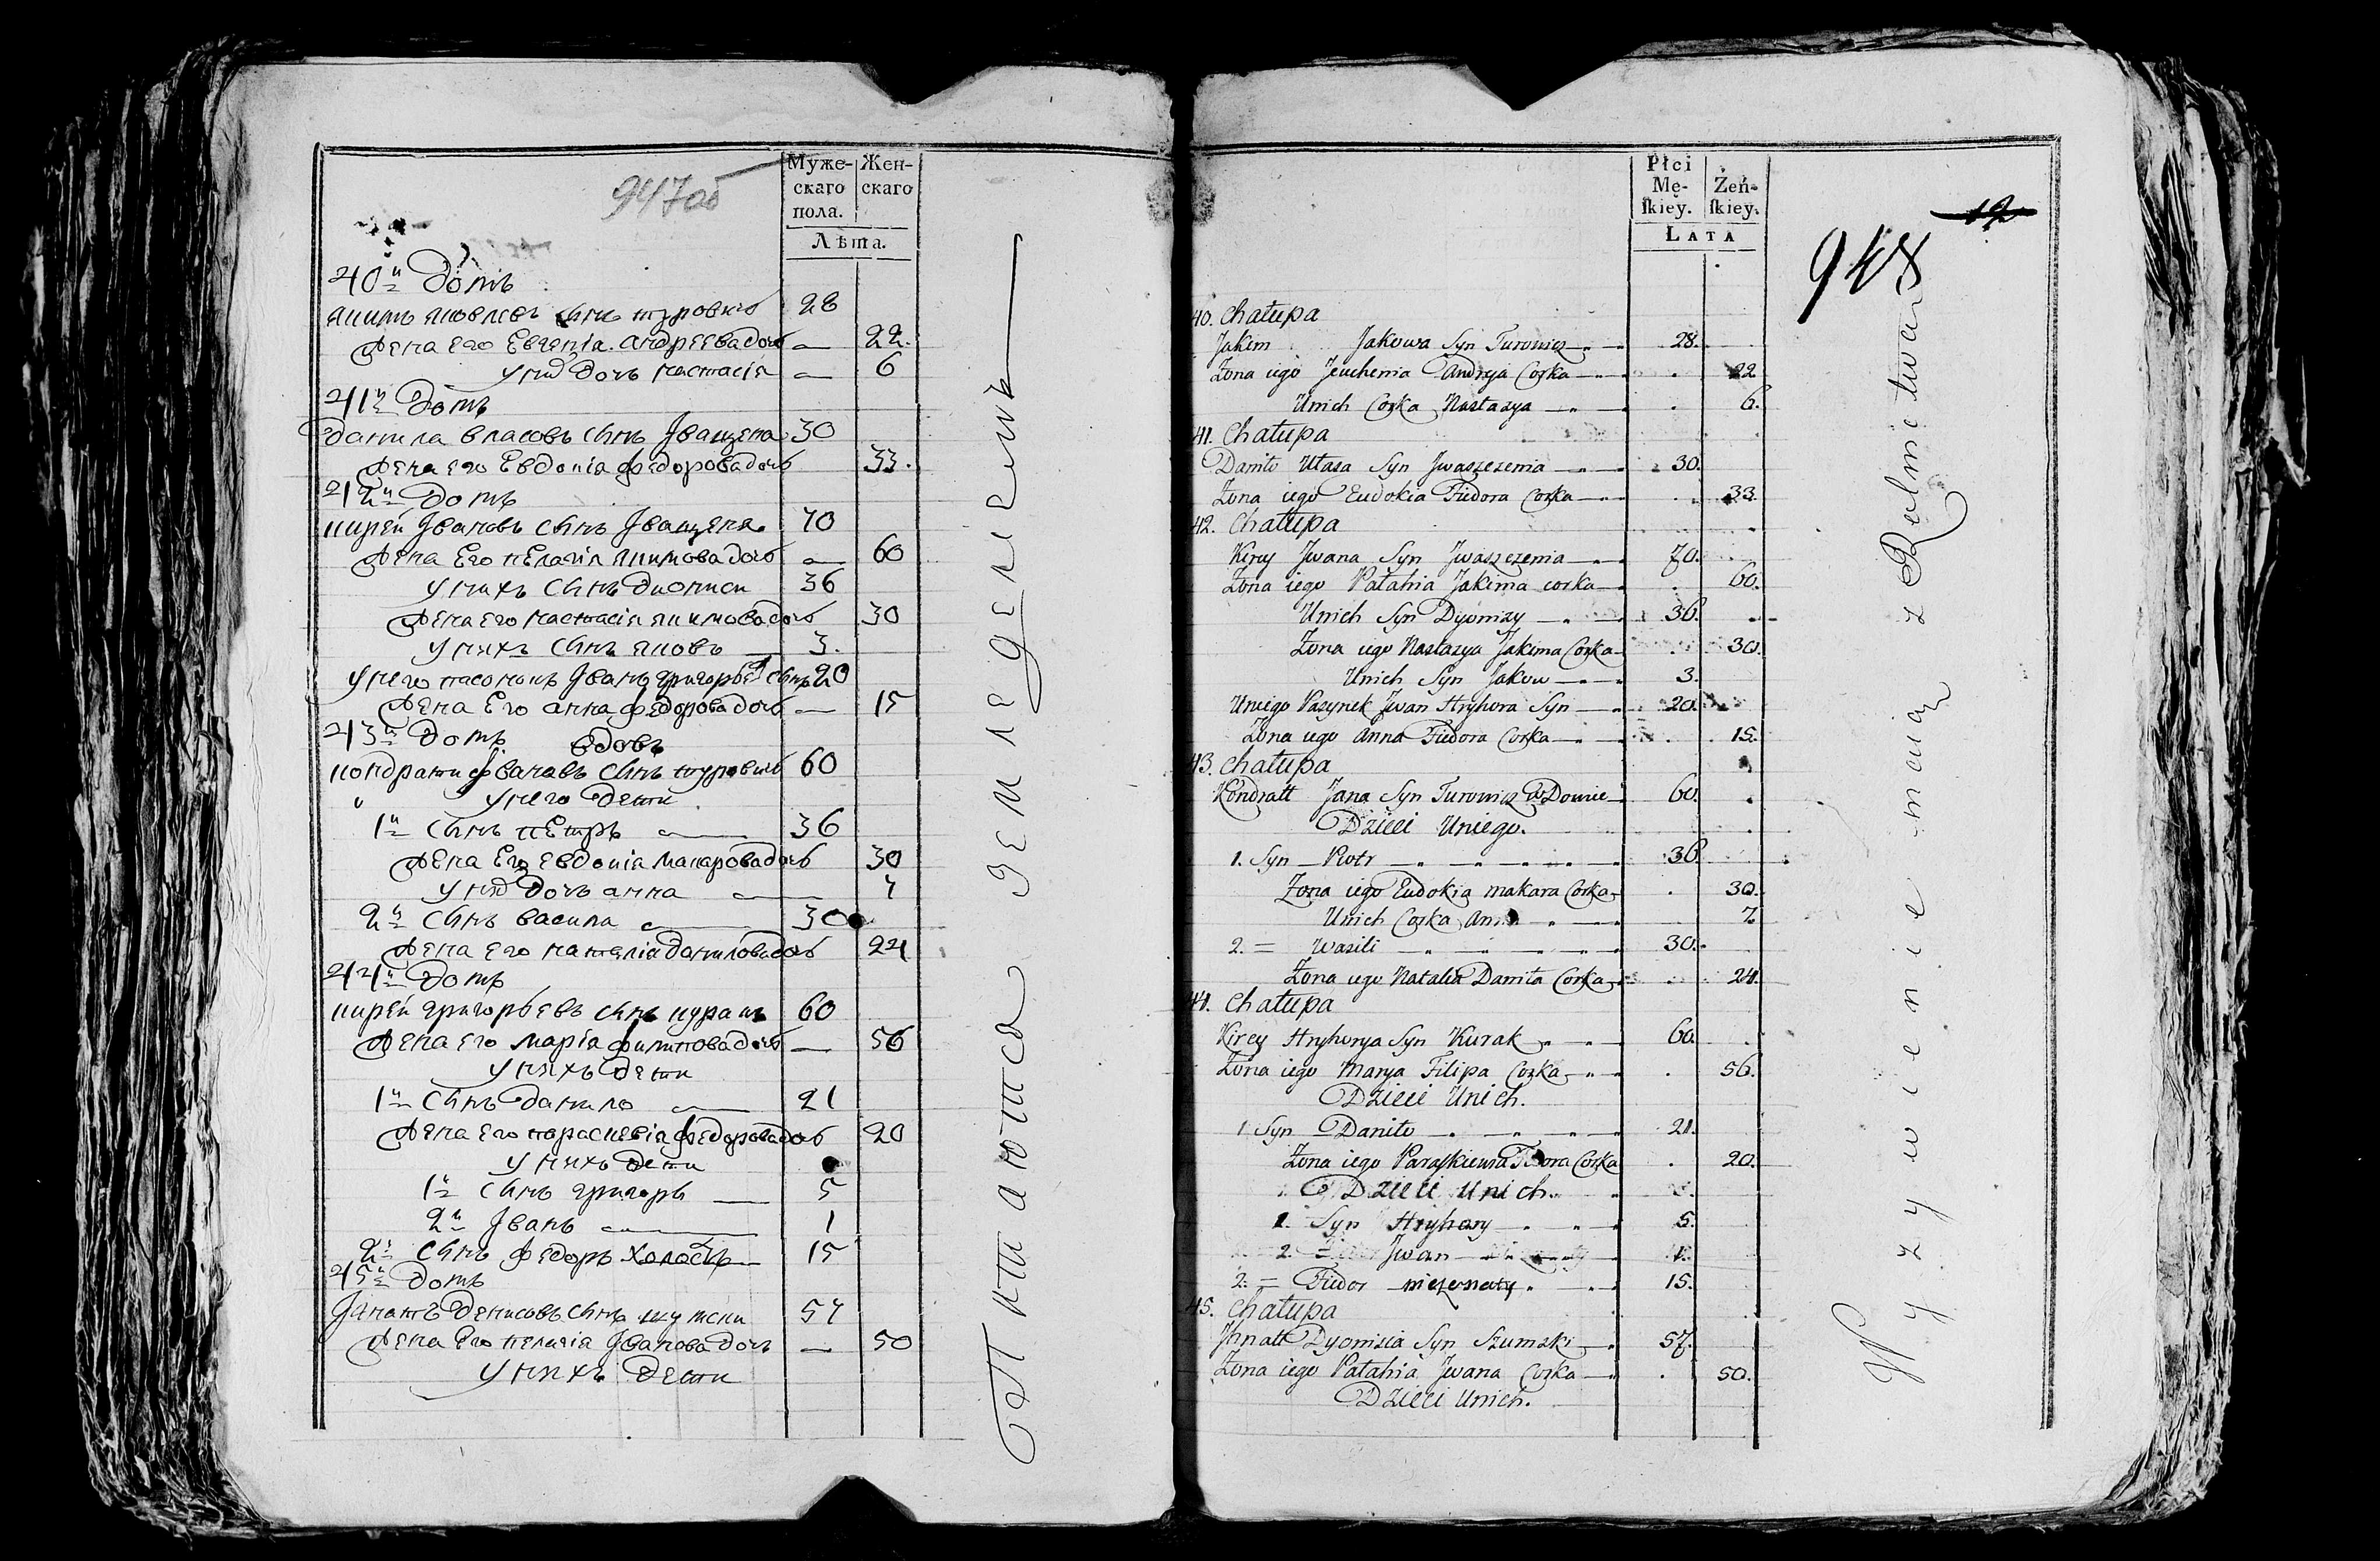 947об
Муже-
скаго
пола.
Жен-
скаго
Лѣта.
40й Домъ
якимъ яковлевъ сынъ туровичъ 28
жена его Евгенiа андреева дочь — 22.
у них дочь настасiя — 6
41й Домъ
данила власовъ сынъ Иващеня 30
жена его Евдокiа федорова дочь 33.
42й Домъ
кирей Ивановъ сынъ Иващеня 70
жена Его пелагiя якимова дочь — 60
у нихъ сынъ диониси 36
жена его настасiя якимова дочь 30
у нихъ сынъ яковъ — 3.
у него пасонокъ Иванъ григорьев сынъ 20
жена Его анна федорова дочь — 15
43й Домъ вдовъ
кондрати Ивановъ сынъ туровичъ 60
у него дети
1й сынъ петръ — 36
жена Его евдокiа макарова дочь 30
у них дочь анна — 7
2й сынъ васила — 30
жена Его наталiа данилова дочь 24
44й Домъ
кирей григорьевъ сынъ куракъ 60
жена Его марiа филипова дочь — 56
у нихъ дети
1й сынъ данило — 21
жена Его параскевiа федорова дочь 20
у нихъ дети
1й сынъ григоръ — 5
2й Иванъ — 1
2й сынъ федоръ холостъ — 15
45й Домъ
Iгнатъ Денисовъ сынъ шумски 57
жена Его пелагiа Iванова дочь — 50
у нихъ дети
Опктаютса земледелиемъ
Płci
Mę-
ſkiey.
Zeń-
ſkiey.
LATA
12
948
40. Chałupa
Jakim Jakowa Syn Turowicz — 28.
Zona iego Jeuchenia Andreja Corka — 22
Unich Corka Nastazya — 6.
41. Chałupa
Daniło Ułasa Syn Jwaszczenia — 30.
Zona iego Eudokia Fiedora Corka — 33.
42. Chałupa
Kirey Jwana Syn Jwaszczenia — 70.
Zona iego Pałahia Jakima corka — 60.
Unich Syn Dyonizy — 36.
Zona iego Nastazya Jakima Corka 30.
Unich Syn Jakow — 3.
Uniego Pasynek Jwan Hryhora Syn — 20.
Zona iego Anna Fiedora Corka — 15.
43. Chałupa
Kondratt Jana Syn Turowicz WDowiec 60.
Dzieci Uniego.
1. Syn — Piotr — 36.
Zona iego Eudokia makara Corka 30.
Unich Corka Anna 7.
2. = Wasili 30.
Zona iego Natalia Daniła Corka 24.
44. Chałupa
Kirey Hryhorya Syn Kurak — 60.
Zona iego Marya Filipa Corka — 56.
Dzieci Unich.
1 Syn — Daniło — 21.
Zona iego Paraſkiewia Corka 20.
Dzieci Unich.
1. Syn Hryhory — 5.
2. Jwan — 1.
2. = Fiedor nieżenaty 15.
45. Chałupa
Jhnatt Dyonizia Syn Szumski — 57.
Zona iego Pałahia Jwana Corka — 50.
Dzieci Unich.
Wyzywienie maią z Rolnictwa